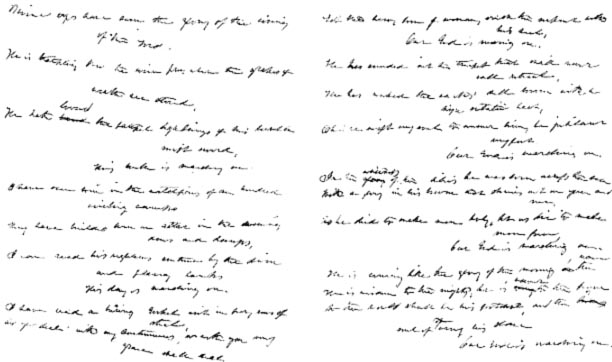 Mine eyes have seen the glory of the coming
of the Lord.
He is trampling out the wine press, where the grapes of
wrath are stored,
loosed
He hath the fateful lightnings of his terrible
swift sword,
His truth is marching on.
I have seen him in the watchfires of an hundred
circling camps
They have builded him an altar in the evening
dews and damps,
I can read his righteous sentence by the dim
and flaring lamps
His day is marching on.
I have read a burning Gospel writ in fiery rows of
steel,
As ye deal with my contemners, so with you my
grace shall deal.
Let the hero, born of woman, crush the serpent with
his heel,
Our God is marching on.
He has sounded out the trumpet that shall never
call retreat,
He has waked the earth's dull sorrow with a
high ecstatic beat,
Oh! be swift my soul to answer him, be jubilant
my feet
Our God is marching on.
whiteness
In the of the lilies he was born across the sea
With a glory in his bosom that shines out on you and
me,
As he died to make men holy, let us die to make
men free,
Our God is marching on.
wave
He is coming like the glory of the morning on the
He is wisdom to the mighty, he is to the brave
So the world shall be his footstool, and the
soul of Time his slave
Our God is marching on.